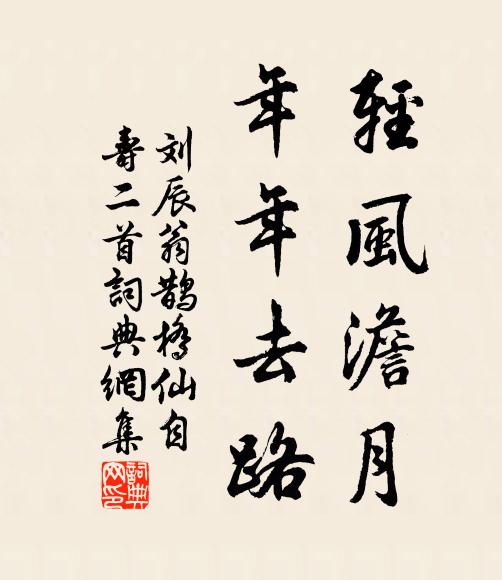 輕風澹月
年年去路
刘辰翁鹊橋仙自
壽二首詞典網集
詞典
网印